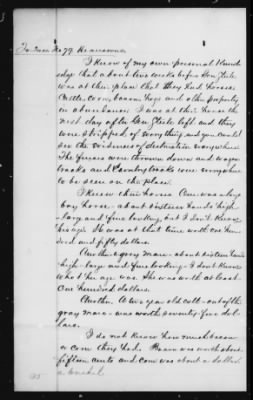 I know of my own personal knowl-
edge that about two weeks before Gen.
was at their place that they had horses
Cattle, corn, bacon, hogs and other property
in abundance. I was at their house the
next day after Gen. left and they
were stripped of everything and you could
see the evidences of destruction everywhere
The fences were thrown down and wagon
tracks and Cavalry tracks were everywhere
to be seen on the place.
I knew their horses. One was a big
bay horse - about sixteen hands high
large and fine looking, but I don't know
his age. He was at that time worth one hun-
dred and fifty dollars.
Another a gray mare - about sixteen hands
high - large and fine looking - I don't know
what her age was. She was worth at least
One hundred dollars.
Another. A two year old colt - out of the
gray mare - was worth seventy-five dol-
lars.
I do not know how much bacon
or corn they had. Bacon was worth about
fifteen cents and corn was about a dollar
a bushel.